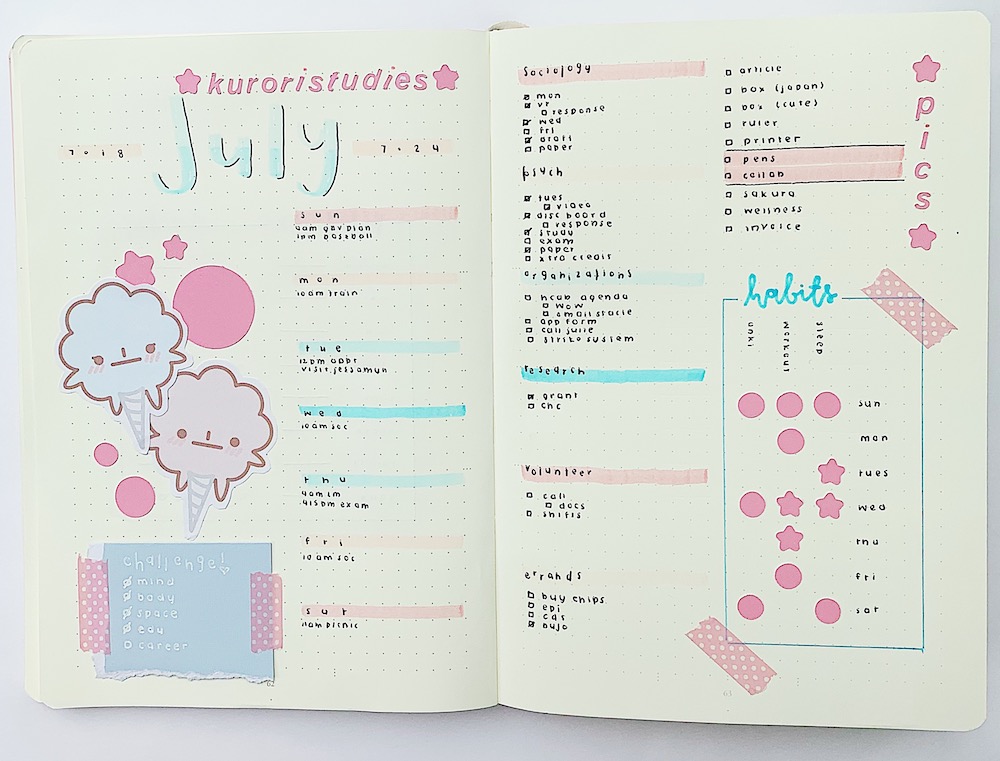 kuroristudies
July
7.18
7.24
sun
9am gov plan
1pm baseball
mon
10am train
tue
12pm appt
visit jessamyn
wed
10am soc
thu
9am lm
415pm exam
fri
10am soc
sat
11am picnic
challenge!
mind
body
space
edu
career
62
sociology
mon
vr
response
wed
fri
draft
paper
psych
tues
video
disc board
response
study
exam
paper
xtra credit
organizations
hcab agenda
wow
email stacie
app form
call julie
strike system
research
grant
chc
volunteer
call
docs
shifts
errands
buy chips
epi
cas
bujo
article
box (japan)
box (cute)
ruler
printer
pens
collab
sakura
wellness
invoice
pics
habits
anki
workout
sleep
sun
mon
tues
wed
thu
fri
sat
63